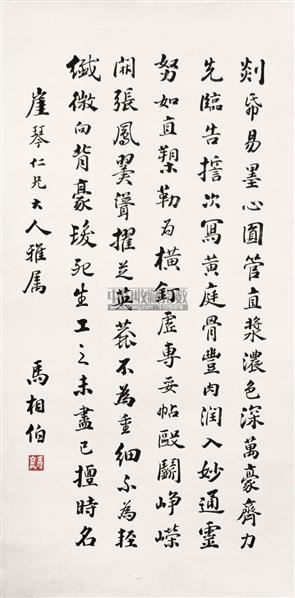 剡帋易墨心圓管直漿濃色深萬豪齊力
先臨告擔次寫黃庭骨豐肉潤入妙通靈
努如直槊勒若橫釘虛專妥帖毆鬭崢嶸
開張鳳翼聳擢芝英蕤不為重細不為輕
纖微向背豪髮死生工之未盡已擅時名
崖琴仁兄大人雅属
馬相伯